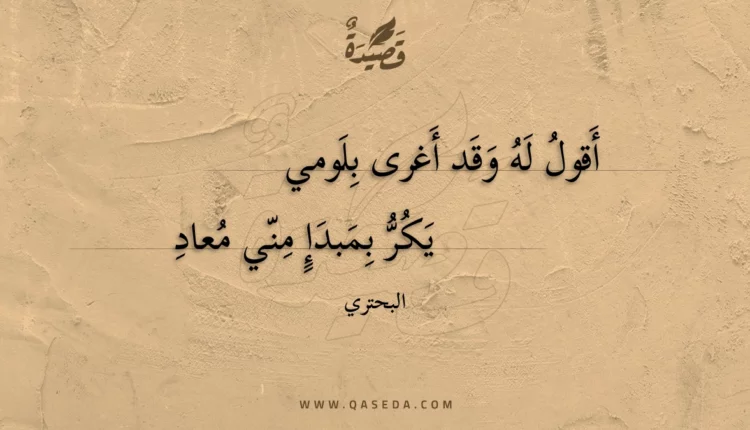 قَصِيْدَةٌ
أَقولُ لَهُ وَقَد أَغرى بِلَومي
يَكُرُّ بِمَبدَإٍ مِنّي مُعادِ
البحتري
WWW.QASEDA.COM